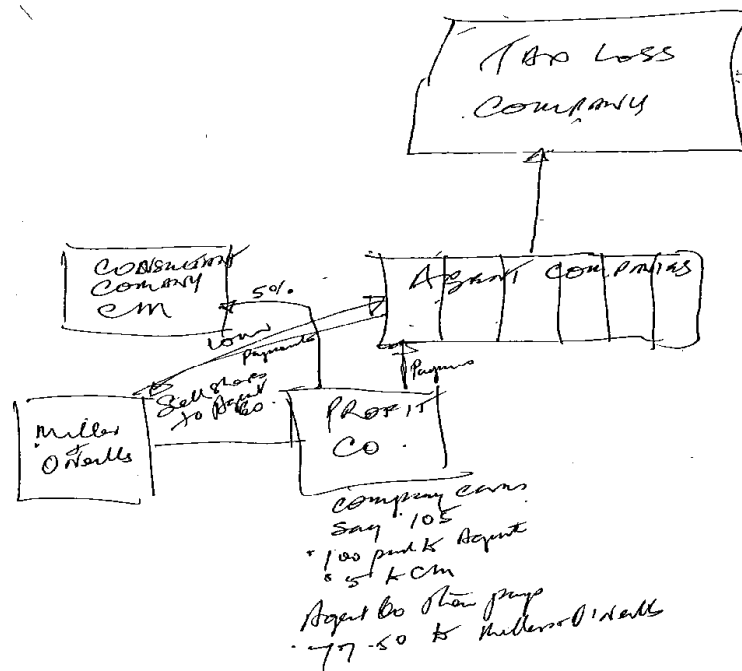 TAX LOSS
COMPANY
CONSULTANT
COMPANY
CM
5%
AGENT COMPANIES
Loan
Payments
Sell shares
to Agent
Co.
Miller
&
O'Neills
PROFIT
CO.
Company earns
say 105
• 100 paid to Agent
• 5 to CM
Agent Co then pays
• 77.50 to Millers O'Neills